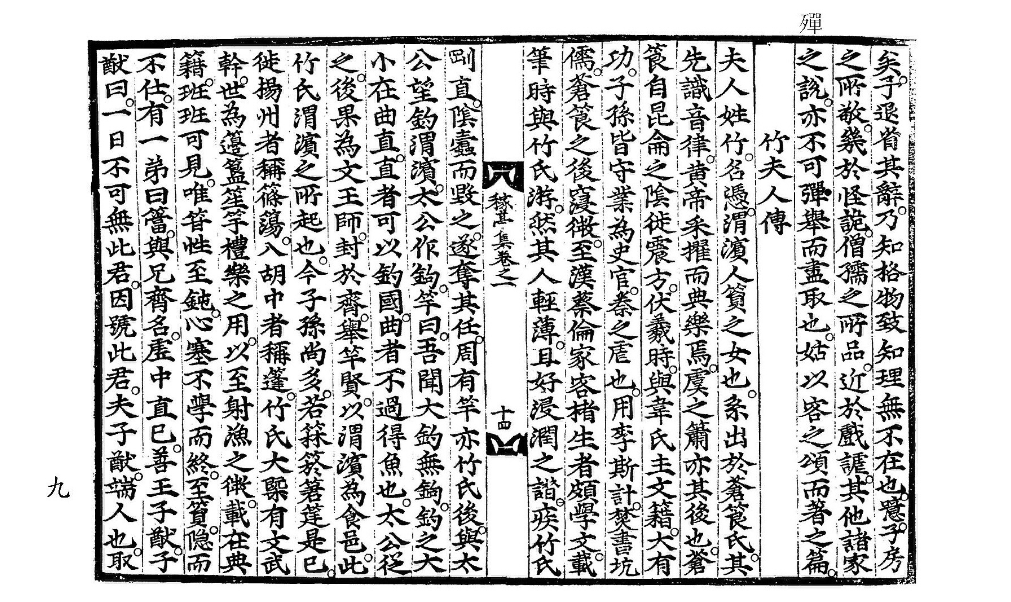 殫
矣子退省其辭乃知格物致知理無不在也噫子房
之所敬幾於怪詭僧孺之所品近於戲謔其他諸家
之說亦不可彈舉而盡取也姑以容之頌而著之篇
竹夫人傳
夫人姓竹名憑渭濱人篔之女也系出於蒼筤氏其
先識音律黃帝采擢而典樂焉虞之簫亦其後也蒼
筤自昆侖之陰徙震方伏羲時與韋氏主文籍大有
功子孫皆守業為史官秦之虐也用李斯計焚書坑
儒蒼筤之後寖微至漢蔡倫家客楮生者頗學文載
筆時與竹氏游然其人輕薄且好浸潤之譖疾竹氏
稼亭集卷之一
十四
剛直陰蠹而毀之遂奪其任周有竿亦竹氏後與太
公望釣渭濱太公作鉤竿曰吾聞大釣無鉤釣之大
小在曲直直者可以釣國曲者不過得魚也太公從
之後果為文王師封於齊舉竿賢以渭濱為食邑此
竹氏渭濱之所起也今子孫尚多若箖箊箬筳是已
徙揚州者稱篠簜入胡中者稱篷竹氏大槩有文武
幹世為籩簋笙竽禮樂之用以至射漁之微載在典
籍班班可見唯䇞性至鈍心塞不學而終至篔隱而
不仕有一弟曰簹與兄齊名虛中直已善王子猷子
猷曰一日不可無此君因號此君夫子猷端人也取
九